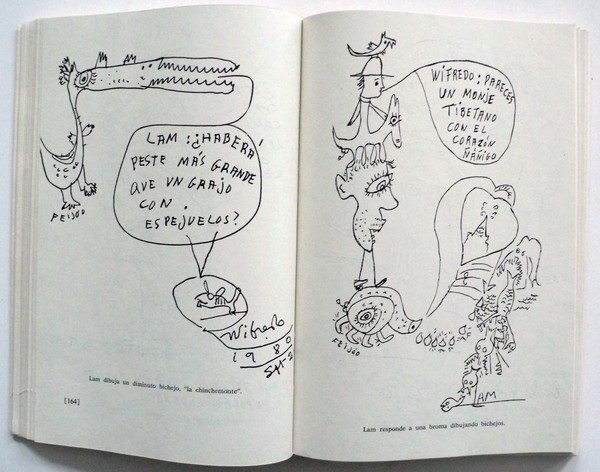 LAM: ¿HABERÁ
PESTE MÁS GRANDE
QUE UN GRAJO
CON
ESPEJUELOS?
FEIJÓO
Wifredo
1980
Lam dibuja un diminuto bichejo, "la chinchemonte".
[164]
WIFREDO: PARECES
UN MONJE
TIBETANO
CON EL
CORAZÓN
ÑÁÑIGO
FEIJÓO
LAM
Lam responde a una broma dibujando bichejos.